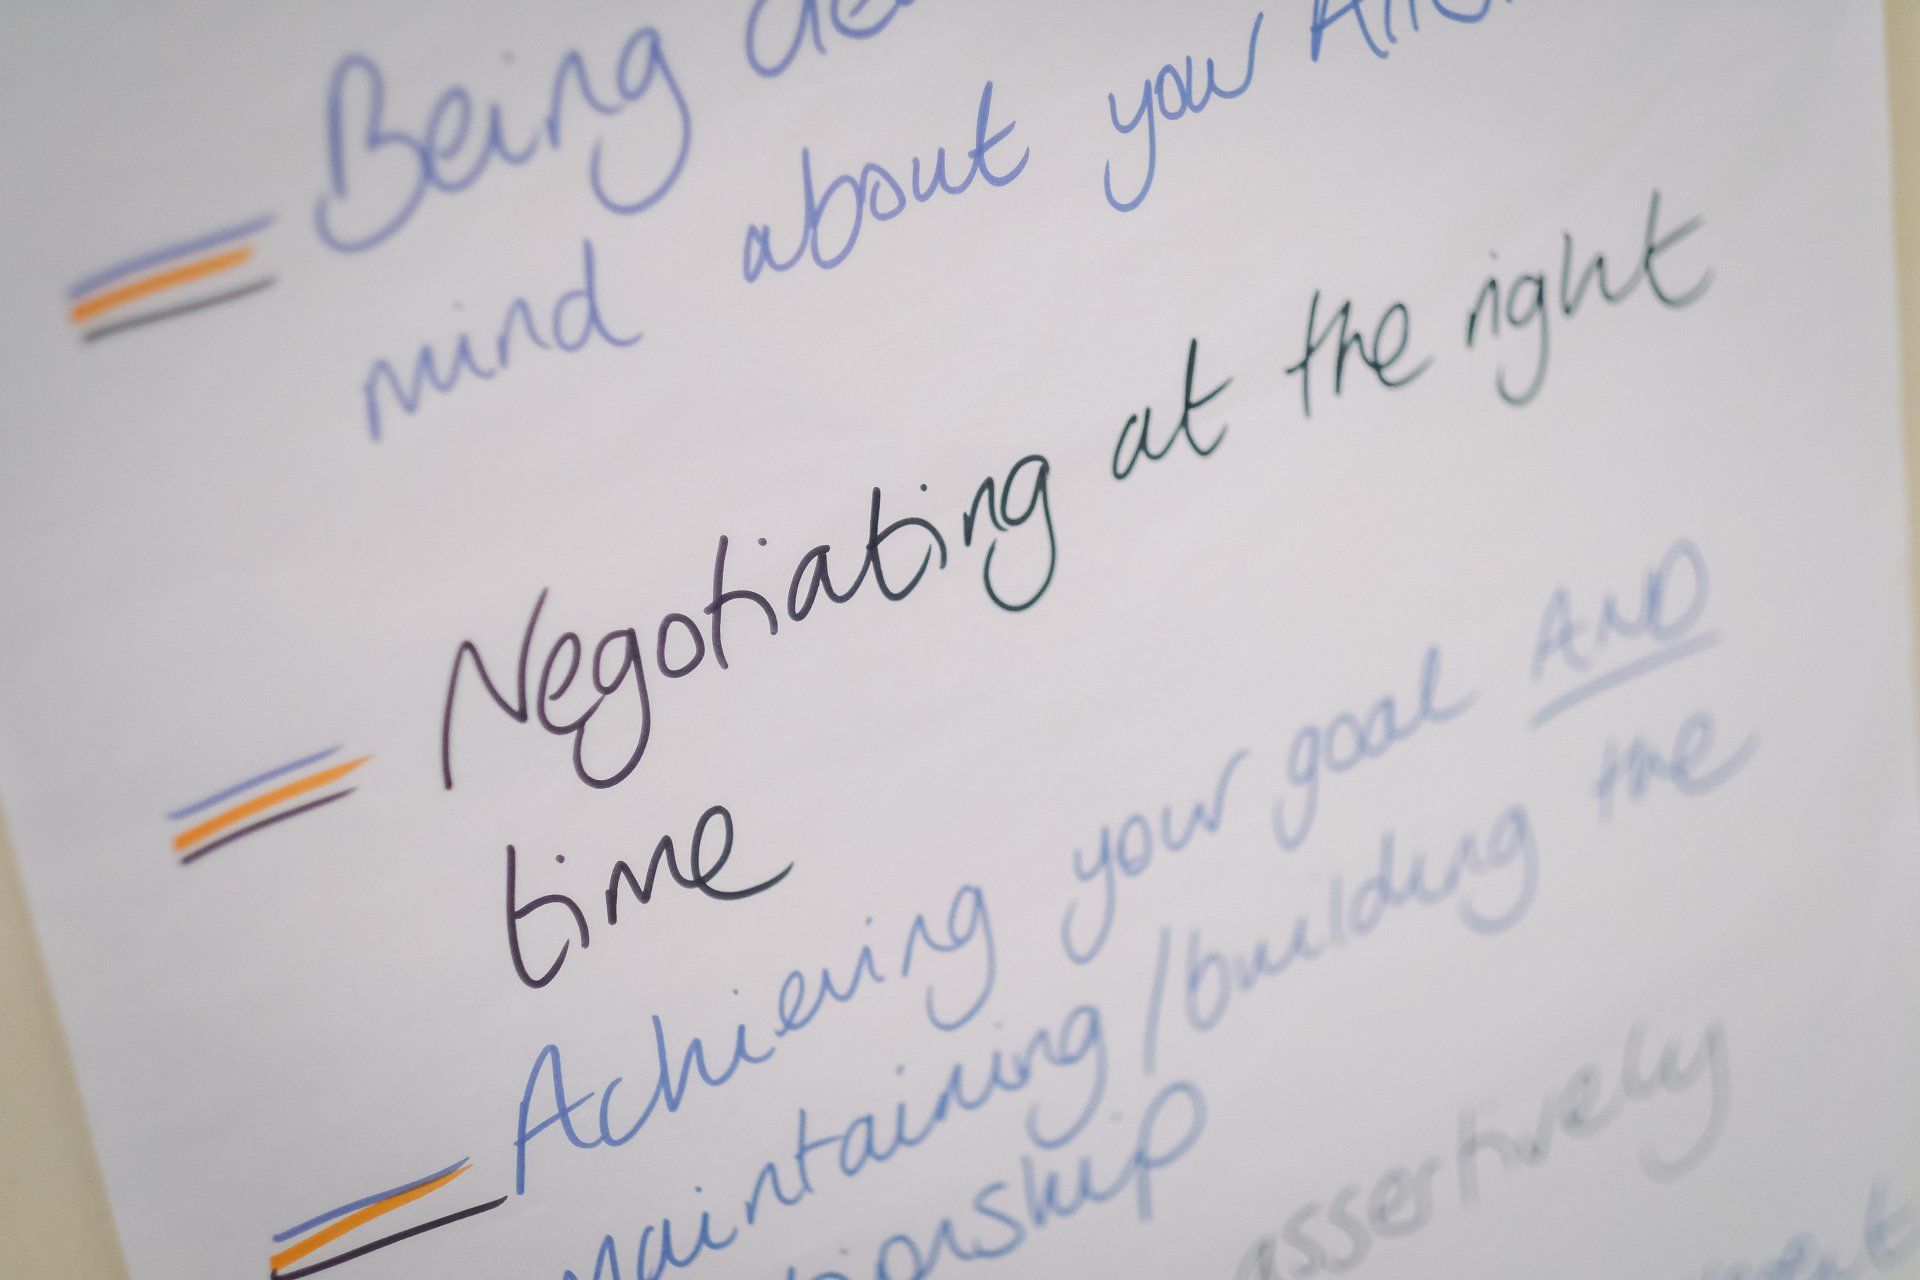 Being
mind about your
Negotiating at the right
time
Achieving your goal AND
maintaining/building the
assertively